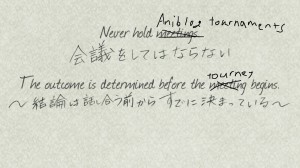 Aniblog tournaments
Never hold meetings.
会議をしてはならない
tourney
The outcome is determined before the meeting begins.
〜結論は話し合う前からすでに決まっている〜